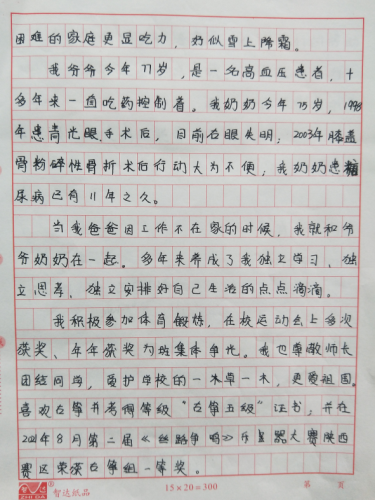 困难的家庭更显吃力，好似雪上降霜。
我爷爷今年77岁，是一名高血压患者，十
多年来一直吃药控制着。我奶奶今年75岁，1998
年患青光眼手术后，目前右眼失明；2003年膝盖
骨粉碎性骨折术后行动大为不便，我奶奶患糖
尿病已有11年之久。
当我爸爸因工作不在家的时候，我就和爷
爷奶奶在一起。多年来养成了我独立学习、独
立思考、独立安排好自己生活的点点滴滴。
我积极参加体育锻炼，在校运动会上多次
获奖、年年获奖为班集体争光。我也尊敬师长
团结同学，爱护学校的一木草一木，更爱祖国。
喜欢古筝并考得等级“古筝五级”证书，并在
年8月第二届《丝路争鸣》器大赛陕西
赛区荣获古筝组一等奖。
智达纸品
15×20=300
第 页